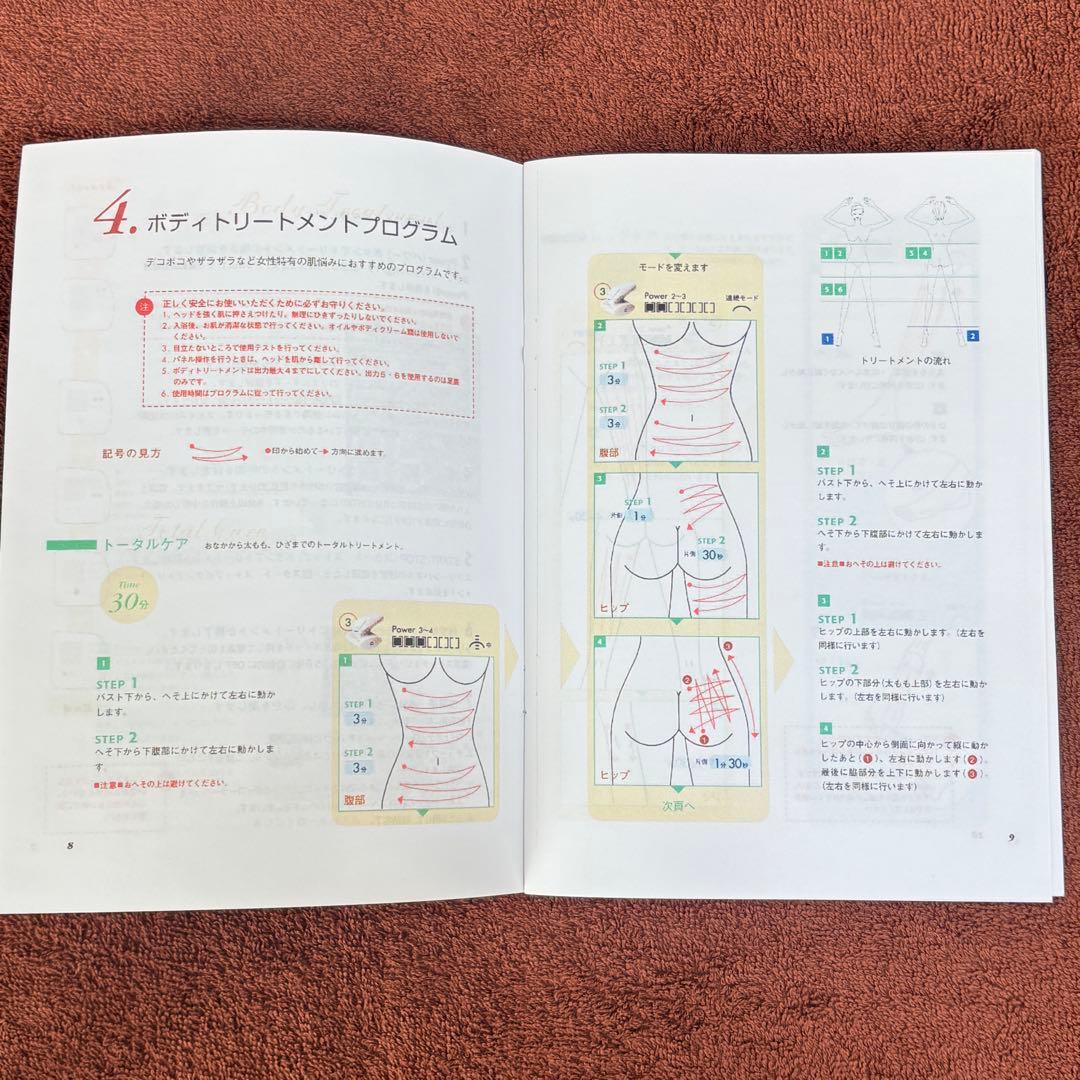 4.
ボディトリートメントプログラム
デコボコやザラザラなど女性特有の肌悩みにおすすめのプログラムです。
注
正しく安全にお使いいただくために必ずお守りください。
1. ヘッドを強く肌に押さえつけたり、無理にひきずったりしないでください。
2. 入浴後、お肌が清潔な状態で行ってください。オイルやボディクリーム類は使用しないで
ください。
3. 目立たないところで使用テストを行ってください。
4. パネル操作を行うときは、ヘッドを肌から離して行ってください。
5. ボディトリートメントは出力最大4までにしてください。出力5・6を使用するのは足裏
のみです。
6. 使用時間はプログラムに従って行ってください。
記号の見方
●印から始めて→方向に進めます。
トータルケア
おなかから太もも、ひざまでのトータルトリートメント。
Time
30分
1
STEP 1
バスト下から、へそ上にかけて左右に動か
します。
STEP 2
へそ下から下腹部にかけて左右に動かしま
す。
■注意■おへその上は避けてください。
3
Power 3〜4
中
1
STEP 1
3分
STEP 2
3分
腹部
8
モードを変えます
3
Power 2〜3
連続モード
2
STEP 1
3分
STEP 2
3分
腹部
3
STEP 1
片側 1分
STEP 2
片側 30秒
ヒップ
4
3
2
1
片側 1分30秒
ヒップ
次頁へ
1 2
3 4
5 6
1
2
トリートメントの流れ
2
STEP 1
バスト下から、へそ上にかけて左右に動か
します。
STEP 2
へそ下から下腹部にかけて左右に動かしま
す。
■注意■おへその上は避けてください。
3
STEP 1
ヒップの上部を左右に動かします。(左右を
同様に行います)
STEP 2
ヒップの下部分(太もも上部)を左右に動か
します。(左右を同様に行います)
4
ヒップの中心から側面に向かって縦に動か
したあと(❶)、左右に動かします(❷)。
最後に脇部分を上下に動かします(❸)。
(左右を同様に行います)
9